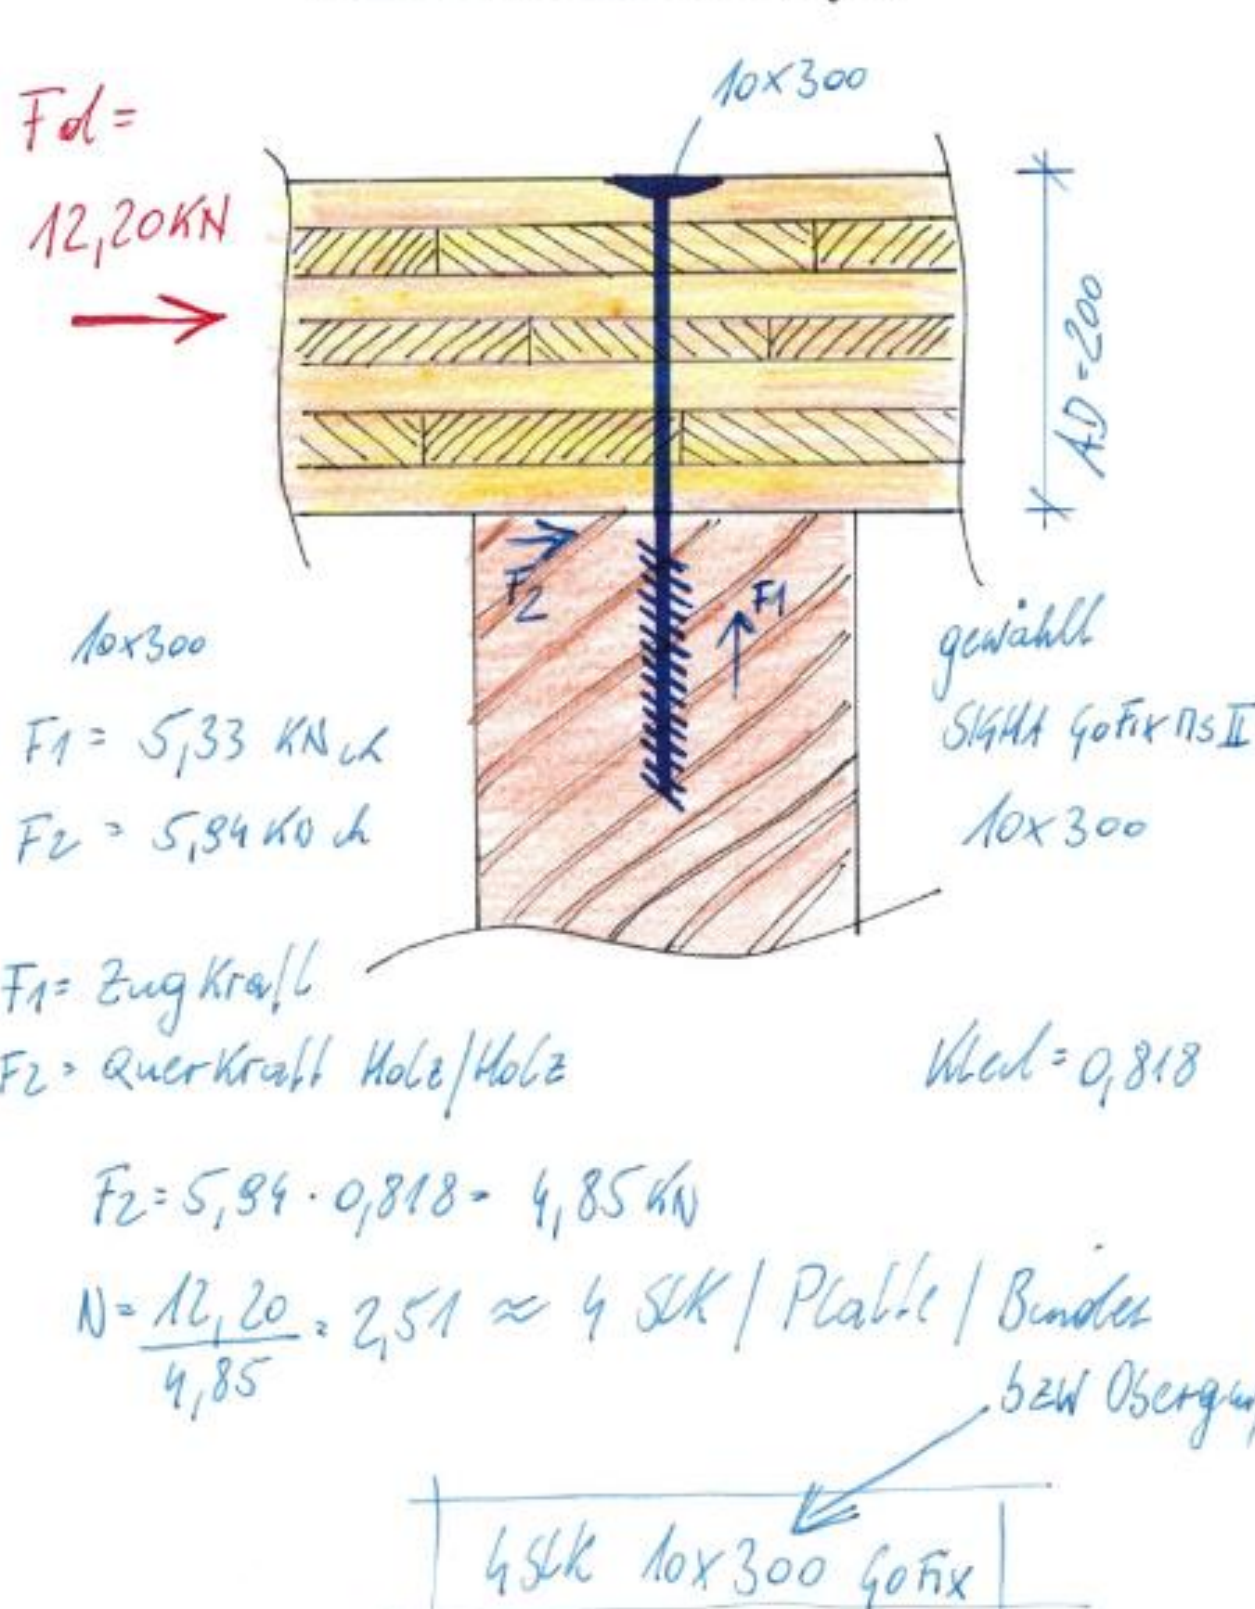 10x300
Fd=
12,20KN
AD=200
F2
F1
10x300
F1 = 5,33 KN ch
F2 = 5,94 KN ch
gewählt
SIGMA GoFix MS II
10x300
F1= Zugkraft
F2= Querkraft Holz/Holz
kled = 0,818
F2 = 5,94 · 0,818 = 4,85 KN
N = 12,20 / 4,85 = 2,51 ≈ 4 Stk / Platte / Binder
bzw
4 Stk 10x300 GoFix